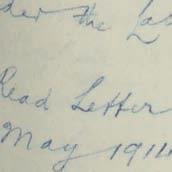 the Las
Read Letter
May 1914